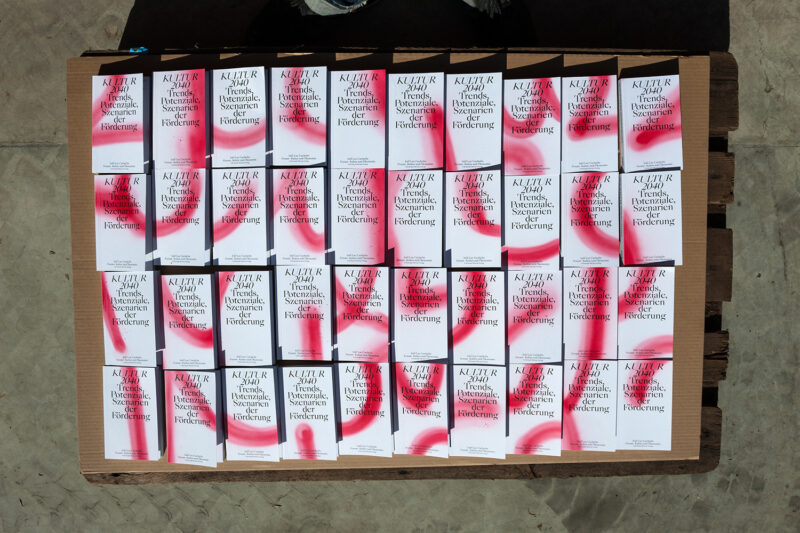 KULTUR
2040
Trends,
Potenziale,
Szenarien
der
Förderung